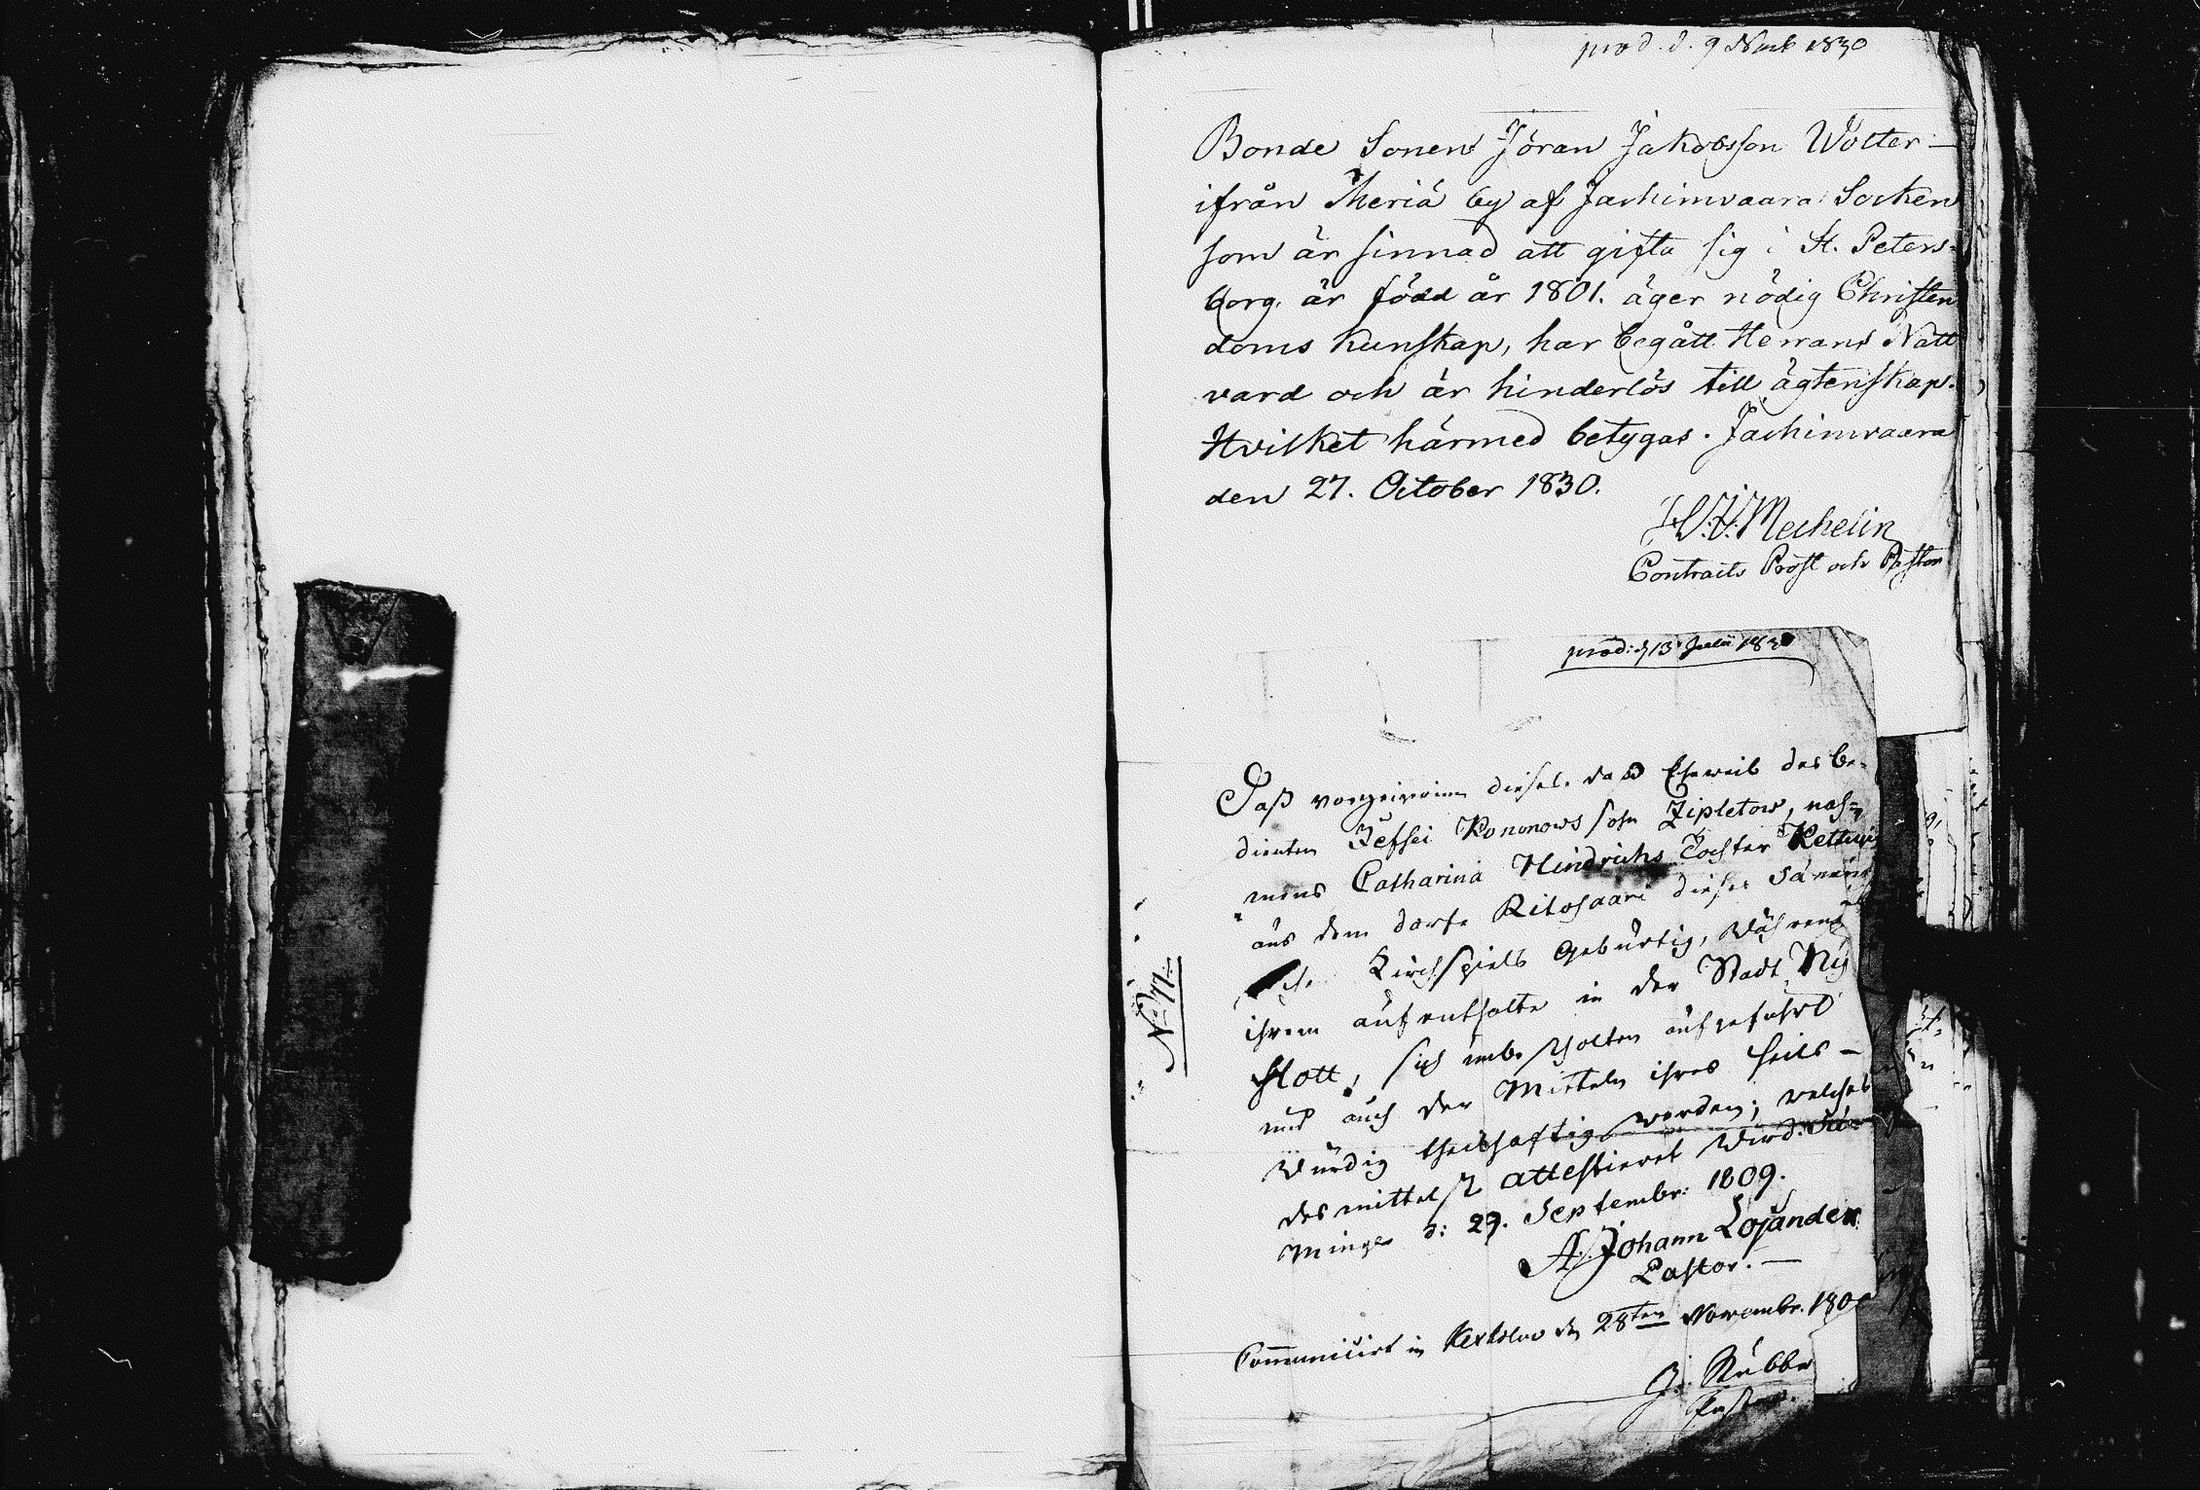 prod. d. 9 Novb 1830
Bonde Sonen Jöran Jakobsson Wolter —
ifrån Meriä by af Jachimvaara Socken
som är sinnad att gifta sig i St. Peters=
borg, är född år 1801. äger nödig Christen
doms kunskap, har begått Herrans Natt
vard och är hinderlös till ägtenskap.
Hvilket härmed betygas. Jachimvaara
den 27. October 1830.
Mechelin
Contracts Prost och Pastor
prod: d 13 Julii 1830
Daß dieses das Eheweib des Be=
dienten Jefsei Kononows sohn Zipletow, nah=
mens Catharina Hindrichs Tochter
aus dem Dorfe Ritosaari dieses
Kirchspiels gebürtig, während
ihrem aufenthalte in der Stadt Ny
slott, sich unbescholten aufgeführt
und auch der Mitteln ihres Heils —
würdig theilhaftig worden; welches
desmittelst attestieret wird.
minge d: 29. Septembr: 1809.
A. Johann Lojander
Pastor. —
No 77.
Communicirt in den 28ten Novembr. 180
Pastor.